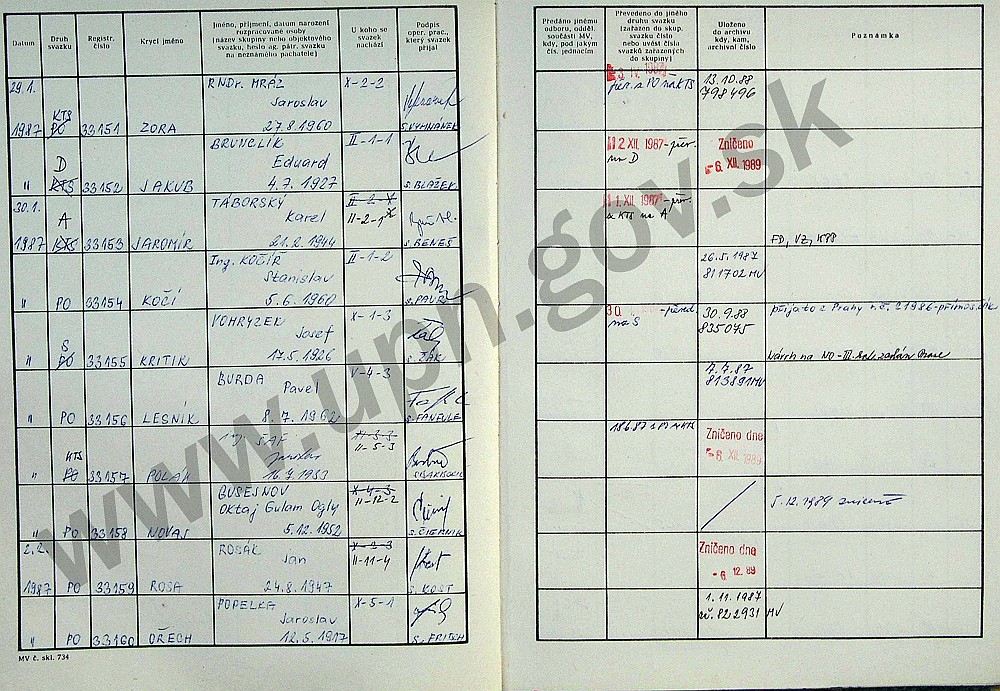 Datum
Druh svazku
Registr. číslo
Krycí jméno
Jméno, příjmení, datum narození
rozpracované osoby
(název skupiny nebo objektového
svazku, heslo ag. pátr. svazku
na neznámého pachatele)
U koho se
svazek
nachází
Podpis
oper. prac.,
který svazek
přijal
Předáno jinému
odboru, odděl.
součásti MV,
kdy, pod jakým
čís. jednacím
Převedeno do jiného
druhu svazku
(zařazen do skup.
svazku číslo
nebo uvést čísla
svazků zařazených
do skupiny)
Uloženo
do archivu
kdy, kam,
archivní číslo
Poznámka
29.1. RNDr. MRÁZ X-2-2 13.10.88
KTS Jaroslav 798496
1987 PO 33151 ZORA 27.8.1960 s. VYHNÁNEK
D BRUNCLÍK II-1-1 2 XII. 1987 - Zničeno
Eduard na D 6. XII. 1989
" KTS 33152 JAKUB 4.7.1927 s. BLAŽEK
30.1. TÁBORSKÝ II-2-X 1. XII. 1987
A Karel II-2-1 z KTS na A
1987 KTS 33153 JAROMÍR 21.2.1944 s. BENEŠ FD, VZ, KPP
Ing. KOČÍŘ II-1-2 26.5.1987
Stanislav 811702 MV
" PO 33154 KOČÍ 5.6.1960
VOHRYZEK X-1-3 30. 30.9.88 přijato z Prahy
S Josef na S 835075
" PO 33155 KRITIK 17.5.1926 s. ŽÁK Návrh na
BURDA V-4-3 7.7.87
Pavel 813891 MV
" PO 33156 LESNÍK 8.7.1962
KTS Zničeno dne
II-5-3 6. XII. 1989
" PO 33157 POLÁK
BUSESNOV X-4-3 5.12.1989 zničeno
Oktaj Gulam Ogly II-12-2
" PO 33158 NOVAS 5.12.1952 s. ČIERNIK
2.2. ROSÁK X-3-3 Zničeno dne
Jan II-11-4 -6.12.89
1987 PO 33159 ROSA 24.8.1947 s. KOST
POPELKA X-5-1 1.11.1987
Jaroslav 822931 MV
" PO 33160 OŘECH 12.5.1917 s. FRITSCH
MV č. skl. 734
www.upn.gov.sk